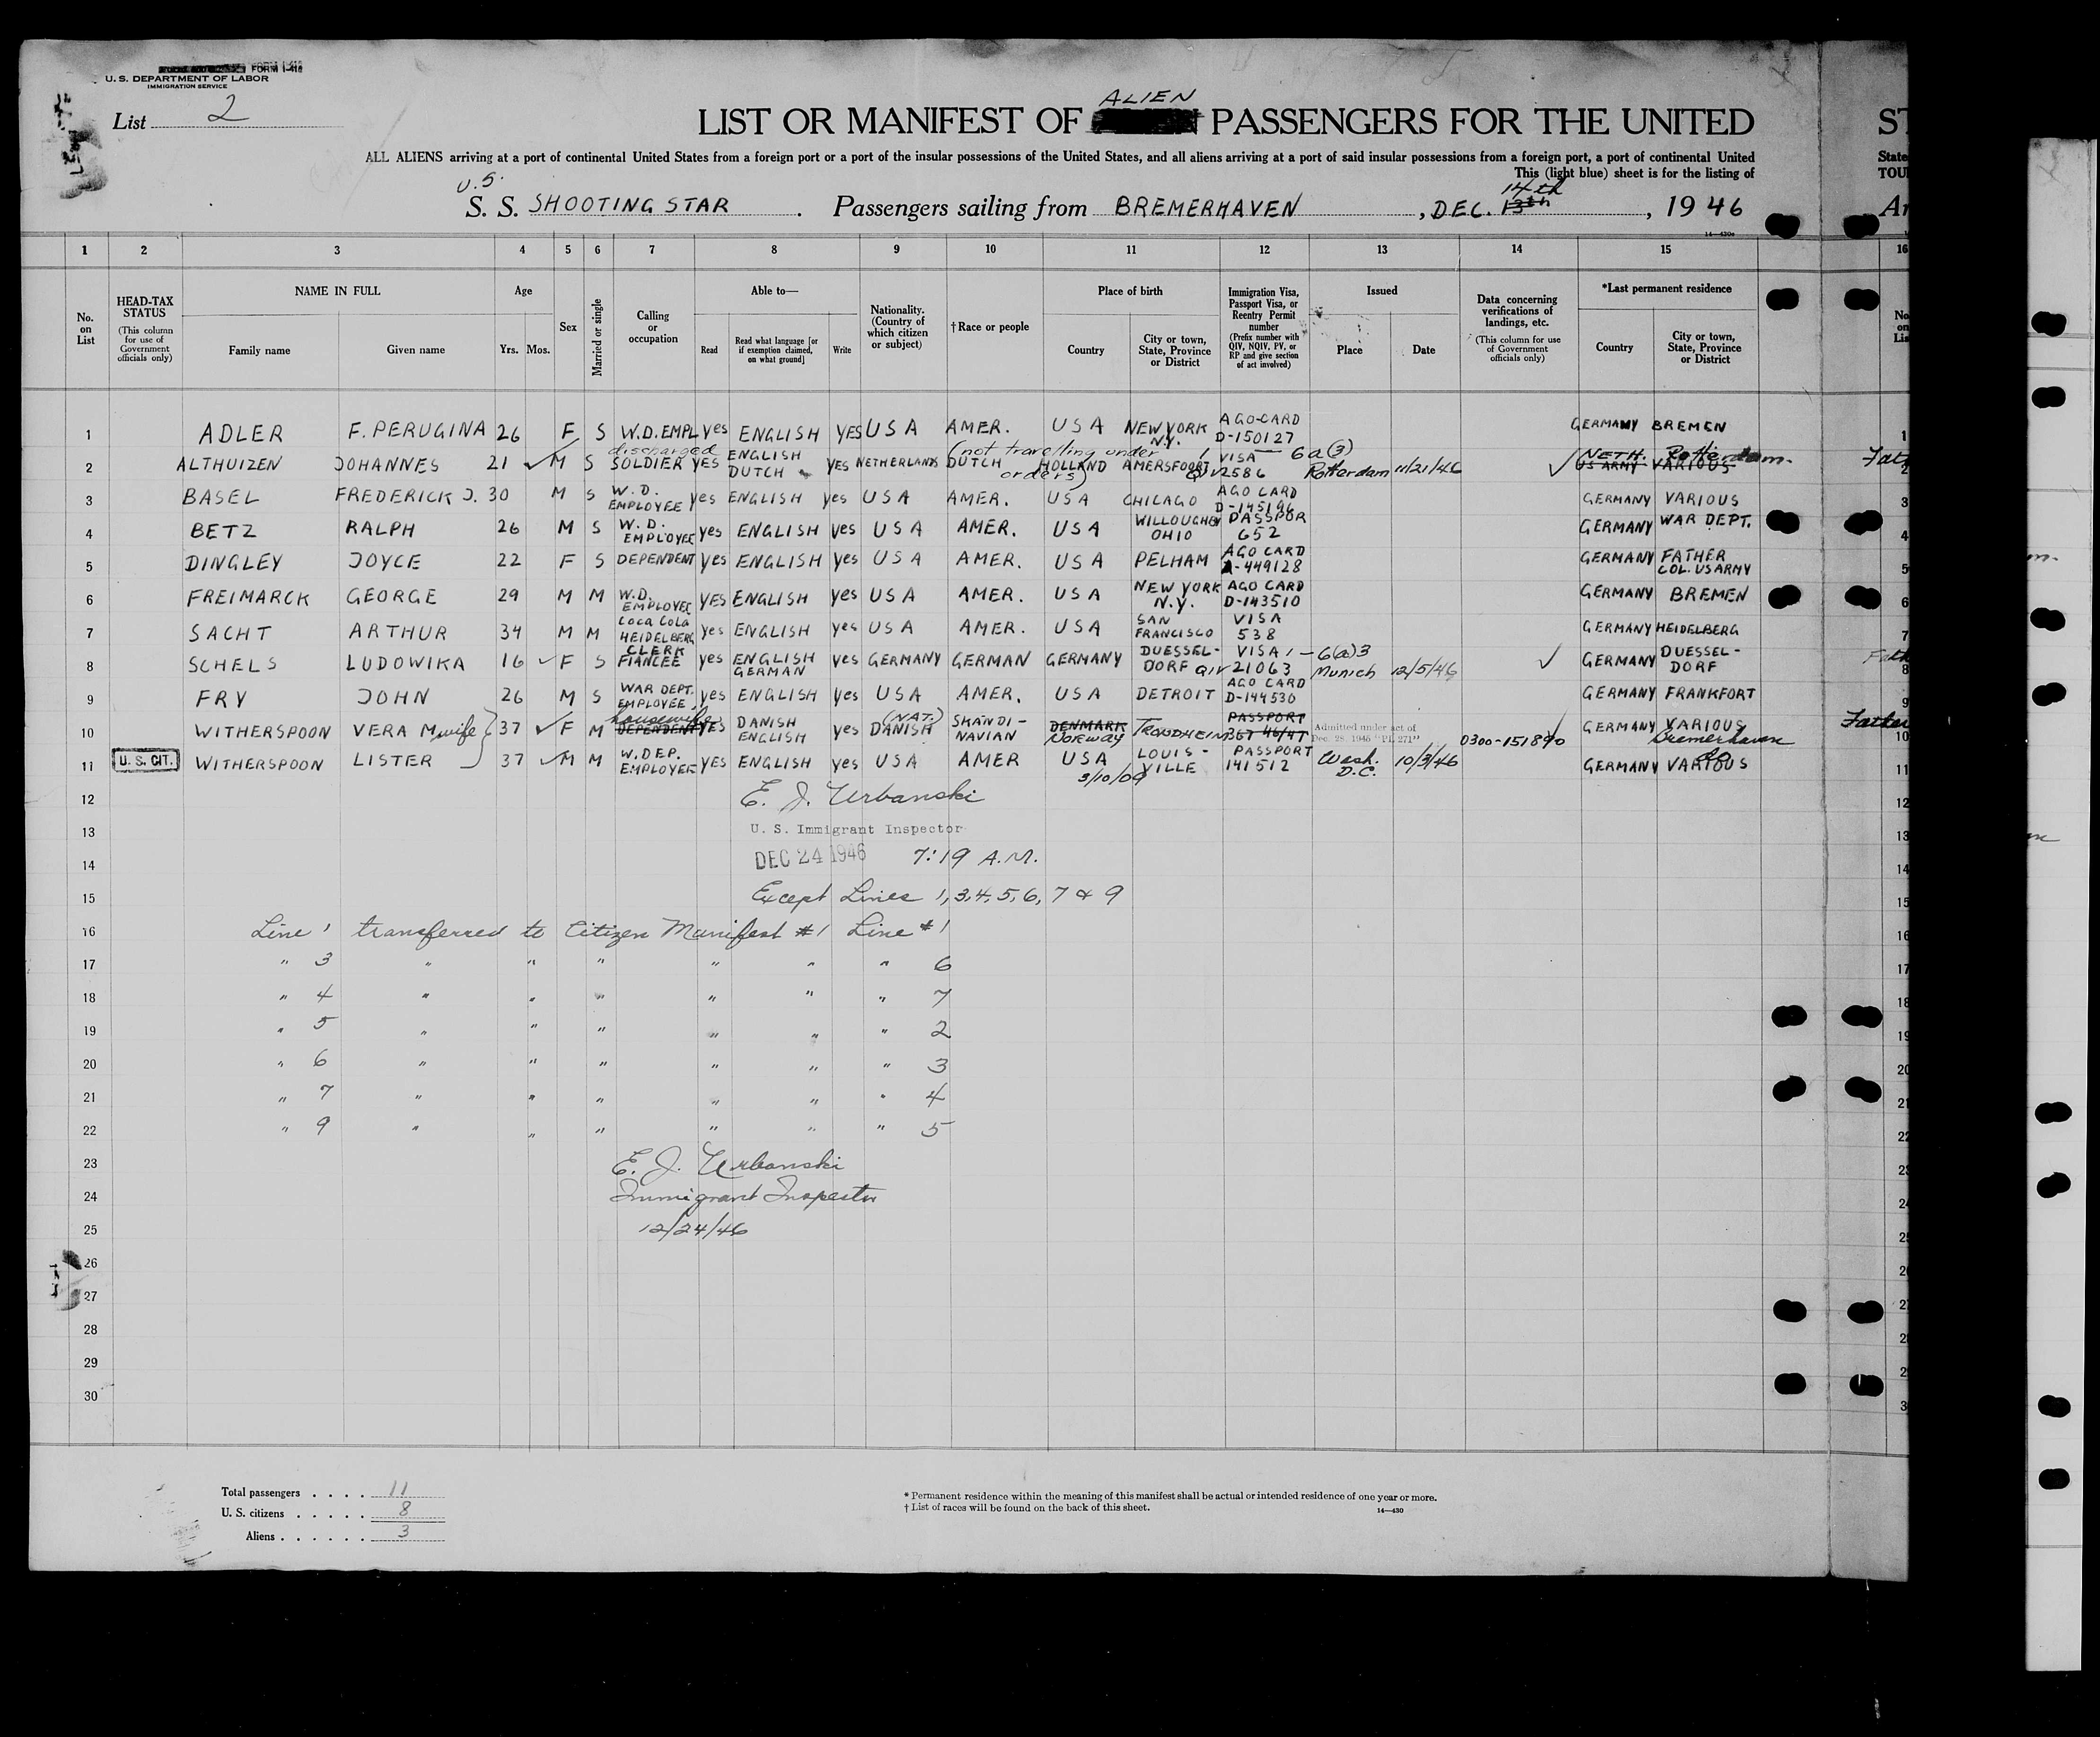 FORM I-418
U. S. DEPARTMENT OF LABOR
IMMIGRATION SERVICE
List 2
ALIEN
LIST OR MANIFEST OF PASSENGERS FOR THE UNITED ST
ALL ALIENS arriving at a port of continental United States from a foreign port or a port of the insular possessions of the United States, and all aliens arriving at a port of said insular possessions from a foreign port, a port of continental United State
This (light blue) sheet is for the listing of TOU
U.S.
S. S. SHOOTING STAR . Passengers sailing from BREMERHAVEN , DEC. 13th 14th , 1946 Ar
14—430a
1 2 3 4 5 6 7 8 9 10 11 12 13 14 15 16
No. on List
HEAD-TAX STATUS (This column for use of Government officials only)
NAME IN FULL
Family name Given name
Age
Yrs. Mos.
Sex
Married or single
Calling or occupation
Able to—
Read
Read what language [or if exemption claimed, on what ground]
Write
Nationality. (Country of which citizen or subject)
† Race or people
Place of birth
Country
City or town, State, Province or District
Immigration Visa, Passport Visa, or Reentry Permit number (Prefix number with QIV, NQIV, PV, or RP and give section of act involved)
Issued
Place Date
Data concerning verifications of landings, etc. (This column for use of Government officials only)
*Last permanent residence
Country
City or town, State, Province or District
1 ADLER F. PERUGINA 26 F S W.D. EMPL yes ENGLISH YES USA AMER. USA NEW YORK N.Y. AGO-CARD D-150127 GERMANY BREMEN 1
2 ALTHUIZEN JOHANNES 21 ✓ M S discharged SOLDIER YES ENGLISH DUTCH YES NETHERLANDS DUTCH (not travelling under orders) HOLLAND AMERSFOORT VISA — 6a(3) QIV 2586 Rotterdam 11/21/46 ✓ US ARMY VARIOUS NETH. Rotterdam. Fath 2
3 BASEL FREDERICK J. 30 M S W.D. EMPLOYEE yes ENGLISH yes USA AMER. USA CHICAGO AGO CARD D-145196 GERMANY VARIOUS 3
4 BETZ RALPH 26 M S W.D. EMPLOYEE yes ENGLISH yes USA AMER. USA WILLOUGHBY OHIO PASSPOR 652 GERMANY WAR DEPT. 4
5 DINGLEY JOYCE 22 F S DEPENDENT yes ENGLISH yes USA AMER. USA PELHAM AGO CARD A-449128 GERMANY FATHER COL. US ARMY 5
6 FREIMARCK GEORGE 29 M M W.D. EMPLOYEE YES ENGLISH yes USA AMER. USA NEW YORK N.Y. AGO CARD D-143510 GERMANY BREMEN 6
7 SACHT ARTHUR 34 M M Coca Cola HEIDELBERG CLERK yes ENGLISH yes USA AMER. USA SAN FRANCISCO VISA 538 GERMANY HEIDELBERG 7
8 SCHELS LUDOWIKA 16 ✓ F S FIANCEE yes ENGLISH GERMAN yes GERMANY GERMAN GERMANY DUESSEL-DORF VISA 1 — 6(a)3 QIV 21063 Munich 12/5/46 ✓ GERMANY DUESSEL-DORF Fath 8
9 FRY JOHN 26 M S WAR DEPT. EMPLOYEE, yes ENGLISH yes USA AMER. USA DETROIT AGO CARD D-144530 GERMANY FRANKFORT 9
10 WITHERSPOON VERA M wife 37 ✓ F M DEPENDENT housewife YES DANISH ENGLISH yes (NAT.) DANISH SKANDI-NAVIAN DENMARK Norway TRONDHEIM PASSPORT 367 46/47 Admitted under act of Dec. 28, 1945 "PL 271" 0300-151890 GERMANY VARIOUS Bremerhaven Father 10
11 U. S. CIT. WITHERSPOON LISTER 37 ✓ M M W. DEP. EMPLOYEE YES ENGLISH yes USA AMER USA 3/10/09 LOUIS-VILLE PASSPORT 141512 Wash. D.C. 10/3/46 GERMANY VARIOUS do 11
12 E. J. Urbanski 12
13 U. S. Immigrant Inspector 13
14 DEC 24 1946 7:19 A.M. 14
15 Except Lines 1, 3, 4, 5, 6, 7 & 9 15
16 Line 1 transferred to Citizen Manifest #1 Line #1 16
17 " 3 " " " " " " 6 17
18 " 4 " " " " " " 7 18
19 " 5 " " " " " " 2 19
20 " 6 " " " " " " 3 20
21 " 7 " " " " " " 4 21
22 " 9 " " " " " " 5 22
23 E. J. Urbanski 23
24 Immigrant Inspector 24
25 12/24/46 25
26
27
28
29
30
Total passengers . . . . 11
U. S. citizens . . . . . 8
Aliens . . . . . . 3
* Permanent residence within the meaning of this manifest shall be actual or intended residence of one year or more.
† List of races will be found on the back of this sheet.
14—430